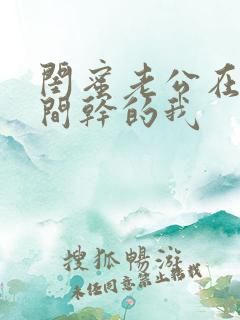 閨蜜老公在
間幹的我
搜狐暢游
未经同意禁止转载